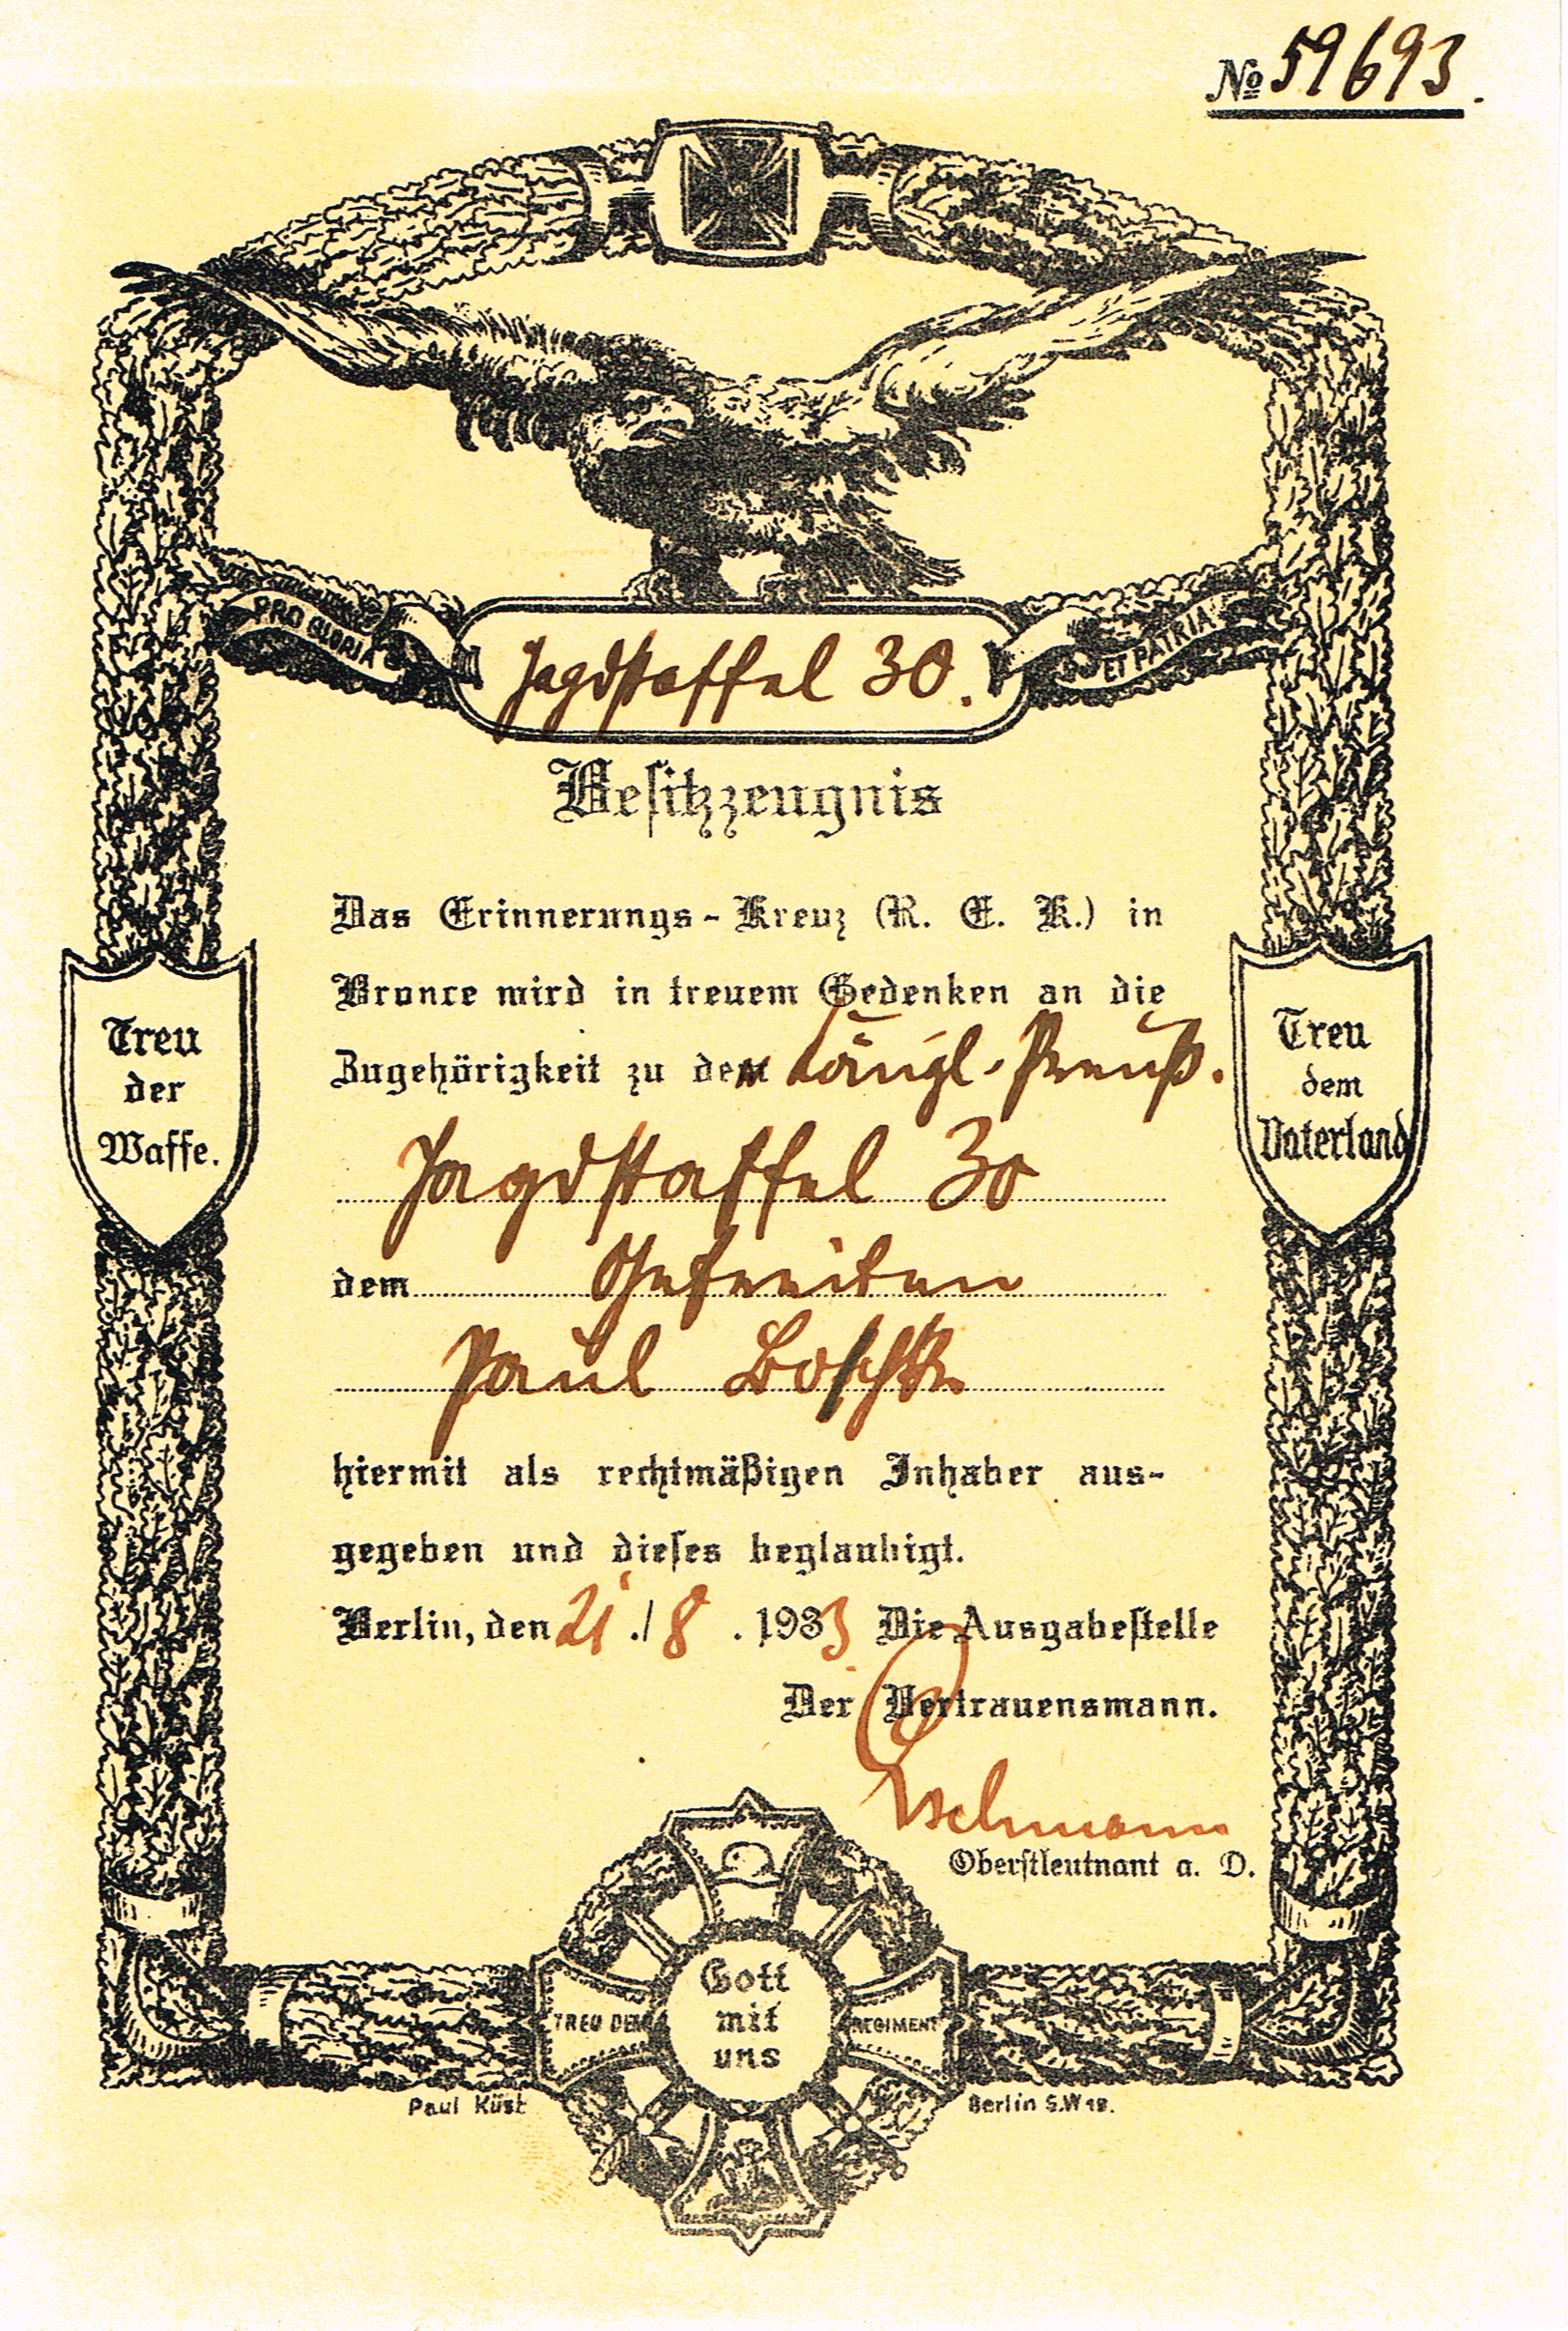 № 59693.
PRO GLORIA
ET PATRIA
Jagdstaffel 30.
Besitzzeugnis
Das Erinnerungs-Kreuz (R. E. K.) in
Bronce wird in treuem Gedenken an die
Zugehörigkeit zu der Königl. Preuß.
Jagdstaffel 30
dem Gefreiten
Paul
hiermit als rechtmäßigen Inhaber aus-
gegeben und dieses beglaubigt.
Berlin, den 21./8. 1933 Die Ausgabestelle
Der Vertrauensmann.
Oberstleutnant a. D.
Treu
der
Waffe.
Treu
dem
Vaterland
Gott
mit
uns
TREU DEM
REGIMENT
Paul Küst
Berlin S.W 19.